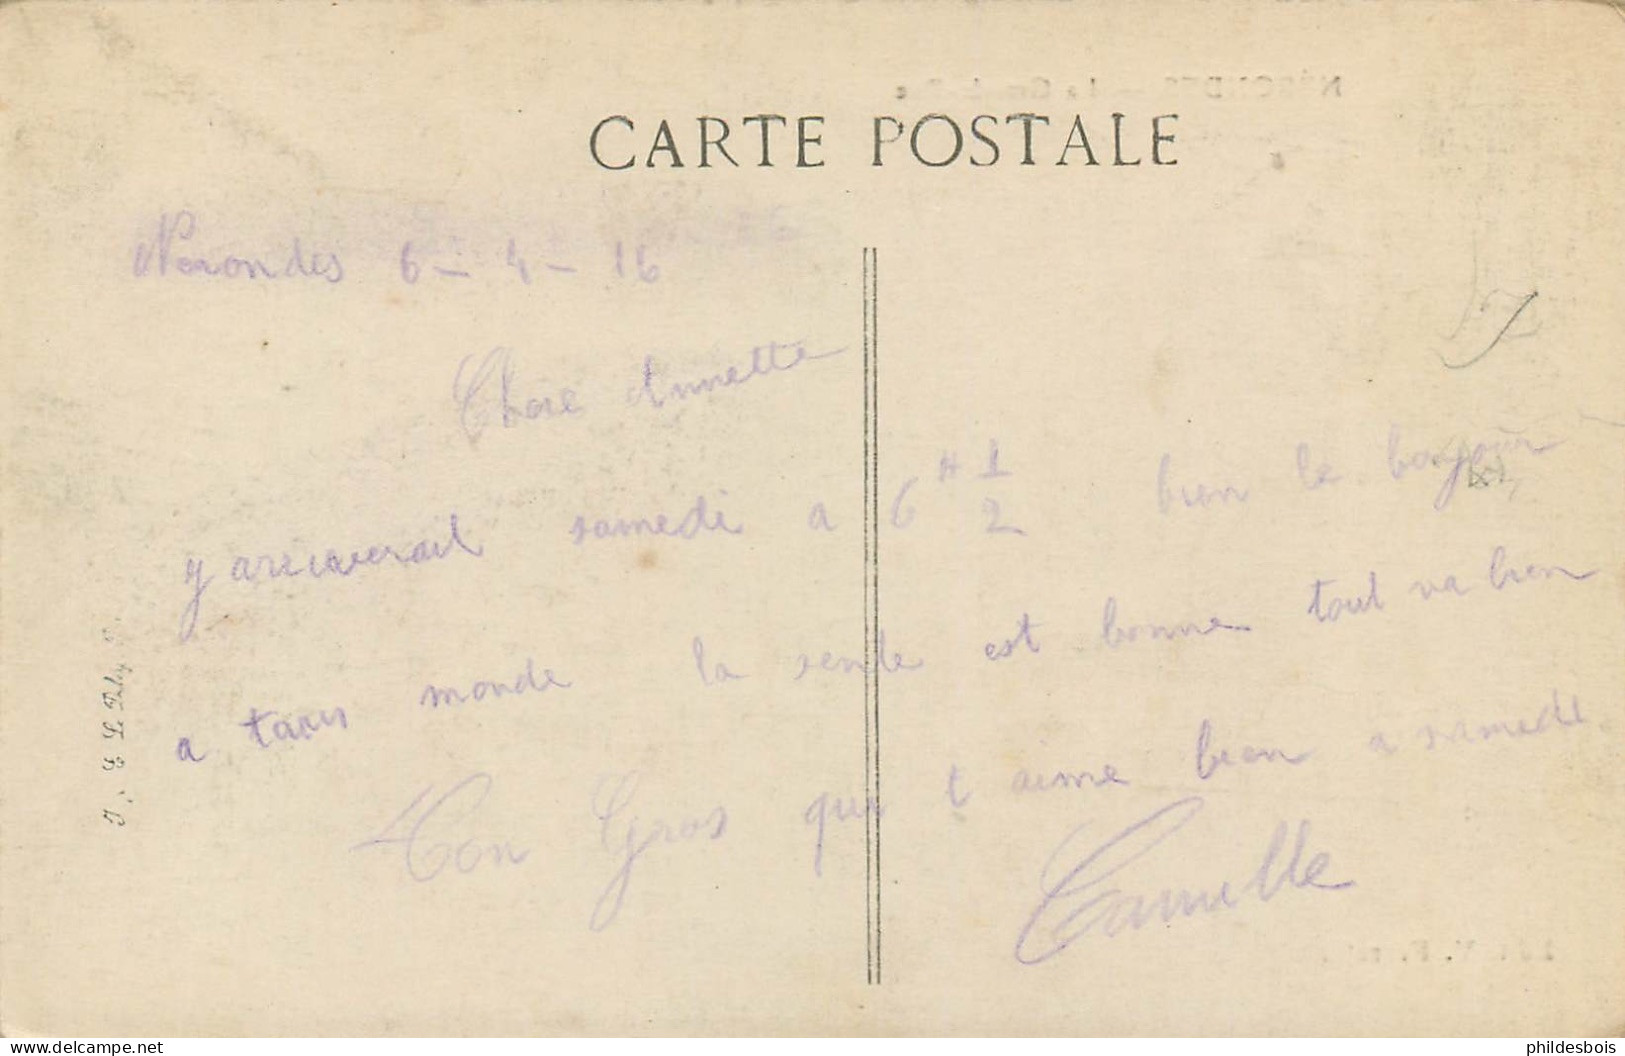 CARTE POSTALE
Nerondes 6 - 4 - 16
Chere Annette
y arriverait samedi a 6 H 1/2 bien le bonjour
a tous monde la sente est bonne tout va bien
Ton Gros qui t aime bien a samedi
Camille
phildesbois